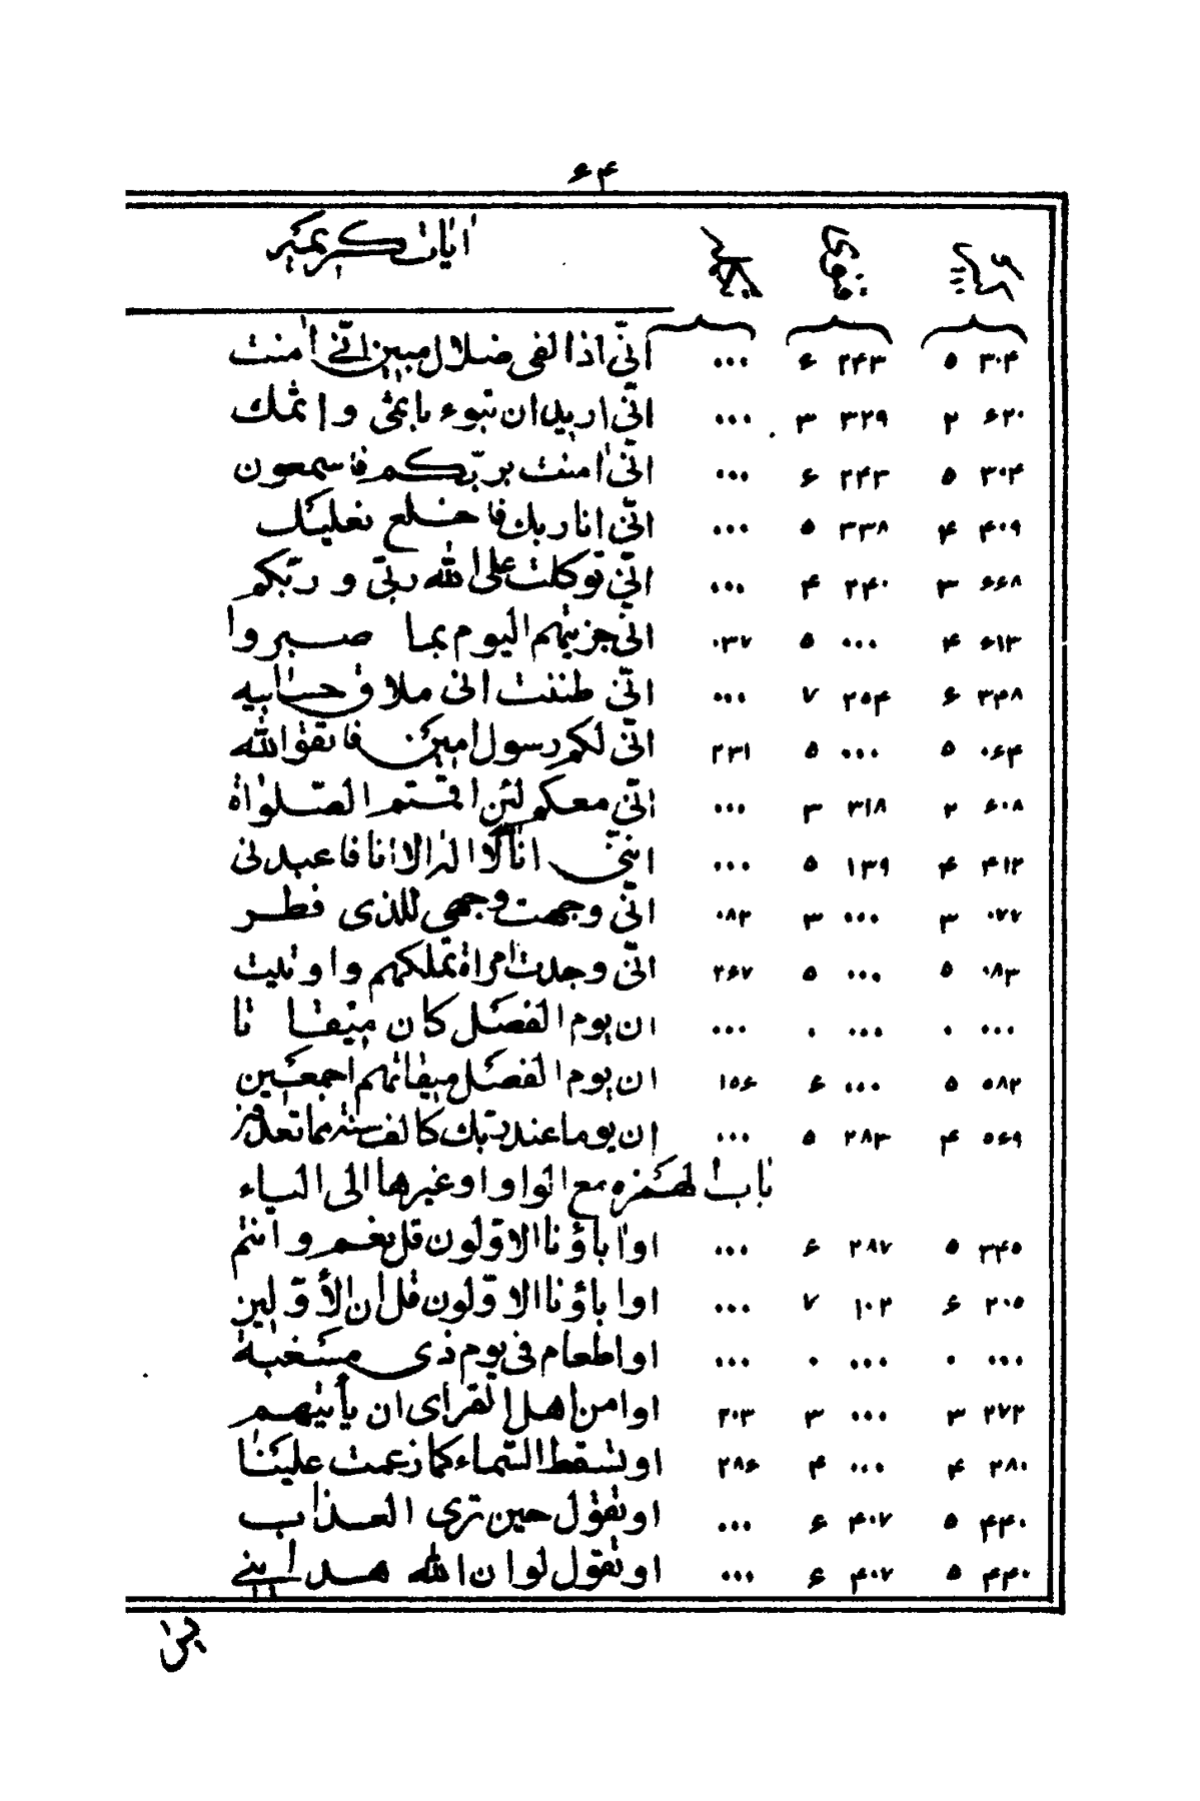 ۶۴
اٰیات کریمه
۳۰۴ ۵ ۲۴۳ ۶ ۰۰۰ انّی اذا لفی ضلال مبین انّی اٰمنت
۶۲۰ ۲ ۳۲۹ ۳ ۰۰۰ انّی ارید ان تبوء باثمی و اثمک
۳۰۴ ۵ ۲۴۳ ۶ ۰۰۰ انّی اٰمنت بربّکم فاسمعون
۴۰۹ ۴ ۳۳۸ ۵ ۰۰۰ انّی انا ربک فاخلع نعلیک
۶۶۸ ۳ ۲۴۰ ۴ ۰۰۰ انّی توکلت علی اللّٰه ربّی و ربّکم
۶۱۳ ۴ ۰۰۰ ۵ ۰۳۷ انّی جزیتهم الیوم بما صبروا
۳۴۸ ۶ ۲۵۴ ۷ ۰۰۰ انّی ظننت انی ملاق حسابیه
۰۶۴ ۵ ۰۰۰ ۵ ۲۳۱ انّی لکم رسول امین فاتقوا اللّٰه
۶۰۸ ۲ ۳۱۸ ۳ ۰۰۰ انّی معکم لئن اقمتم الصّلوٰاة
۴۱۲ ۴ ۱۳۹ ۵ ۰۰۰ اننّی انا لا اله الا انا فاعبدنی
۰۷۷ ۳ ۰۰۰ ۳ ۰۸۲ انّی وجهت وجهی للذی فطر
۰۸۳ ۵ ۰۰۰ ۵ ۲۶۷ انّی وجدت امراة تملکهم و اوتیت
۰۰۰ ۰ ۰۰۰ ۰ ۰۰۰ ان یوم الفصل کان میقاتا
۵۸۲ ۵ ۰۰۰ ۶ ۱۵۶ ان یوم الفصل میقاتهم اجمعین
۵۶۹ ۴ ۲۸۳ ۵ ۰۰۰ ان یوما عند ربّک کالف سنه مما تعدون
باب الهمزه مع الواو او غیرها الی الیاء
۳۴۵ ۵ ۲۸۷ ۶ ۰۰۰ اواٰباؤنا الاوّلون قل نعم و انتم
۲۰۵ ۶ ۱۰۲ ۷ ۰۰۰ اواباؤنا الاوّلون قل ان الأوّلین
۰۰۰ ۰ ۰۰۰ ۰ ۰۰۰ او اطعام فی یوم ذی مسغبة
۲۷۲ ۳ ۰۰۰ ۳ ۲۰۳ او امن اهل القرای ان یأتیهم
۲۸۰ ۴ ۰۰۰ ۴ ۲۸۶ او تسقط السّماء کما زعمت علینا
۴۴۰ ۵ ۴۰۷ ۶ ۰۰۰ او تقول حین تری العذاب
۴۴۰ ۵ ۴۰۷ ۶ ۰۰۰ او تقول لو ان اللّٰه هدانی